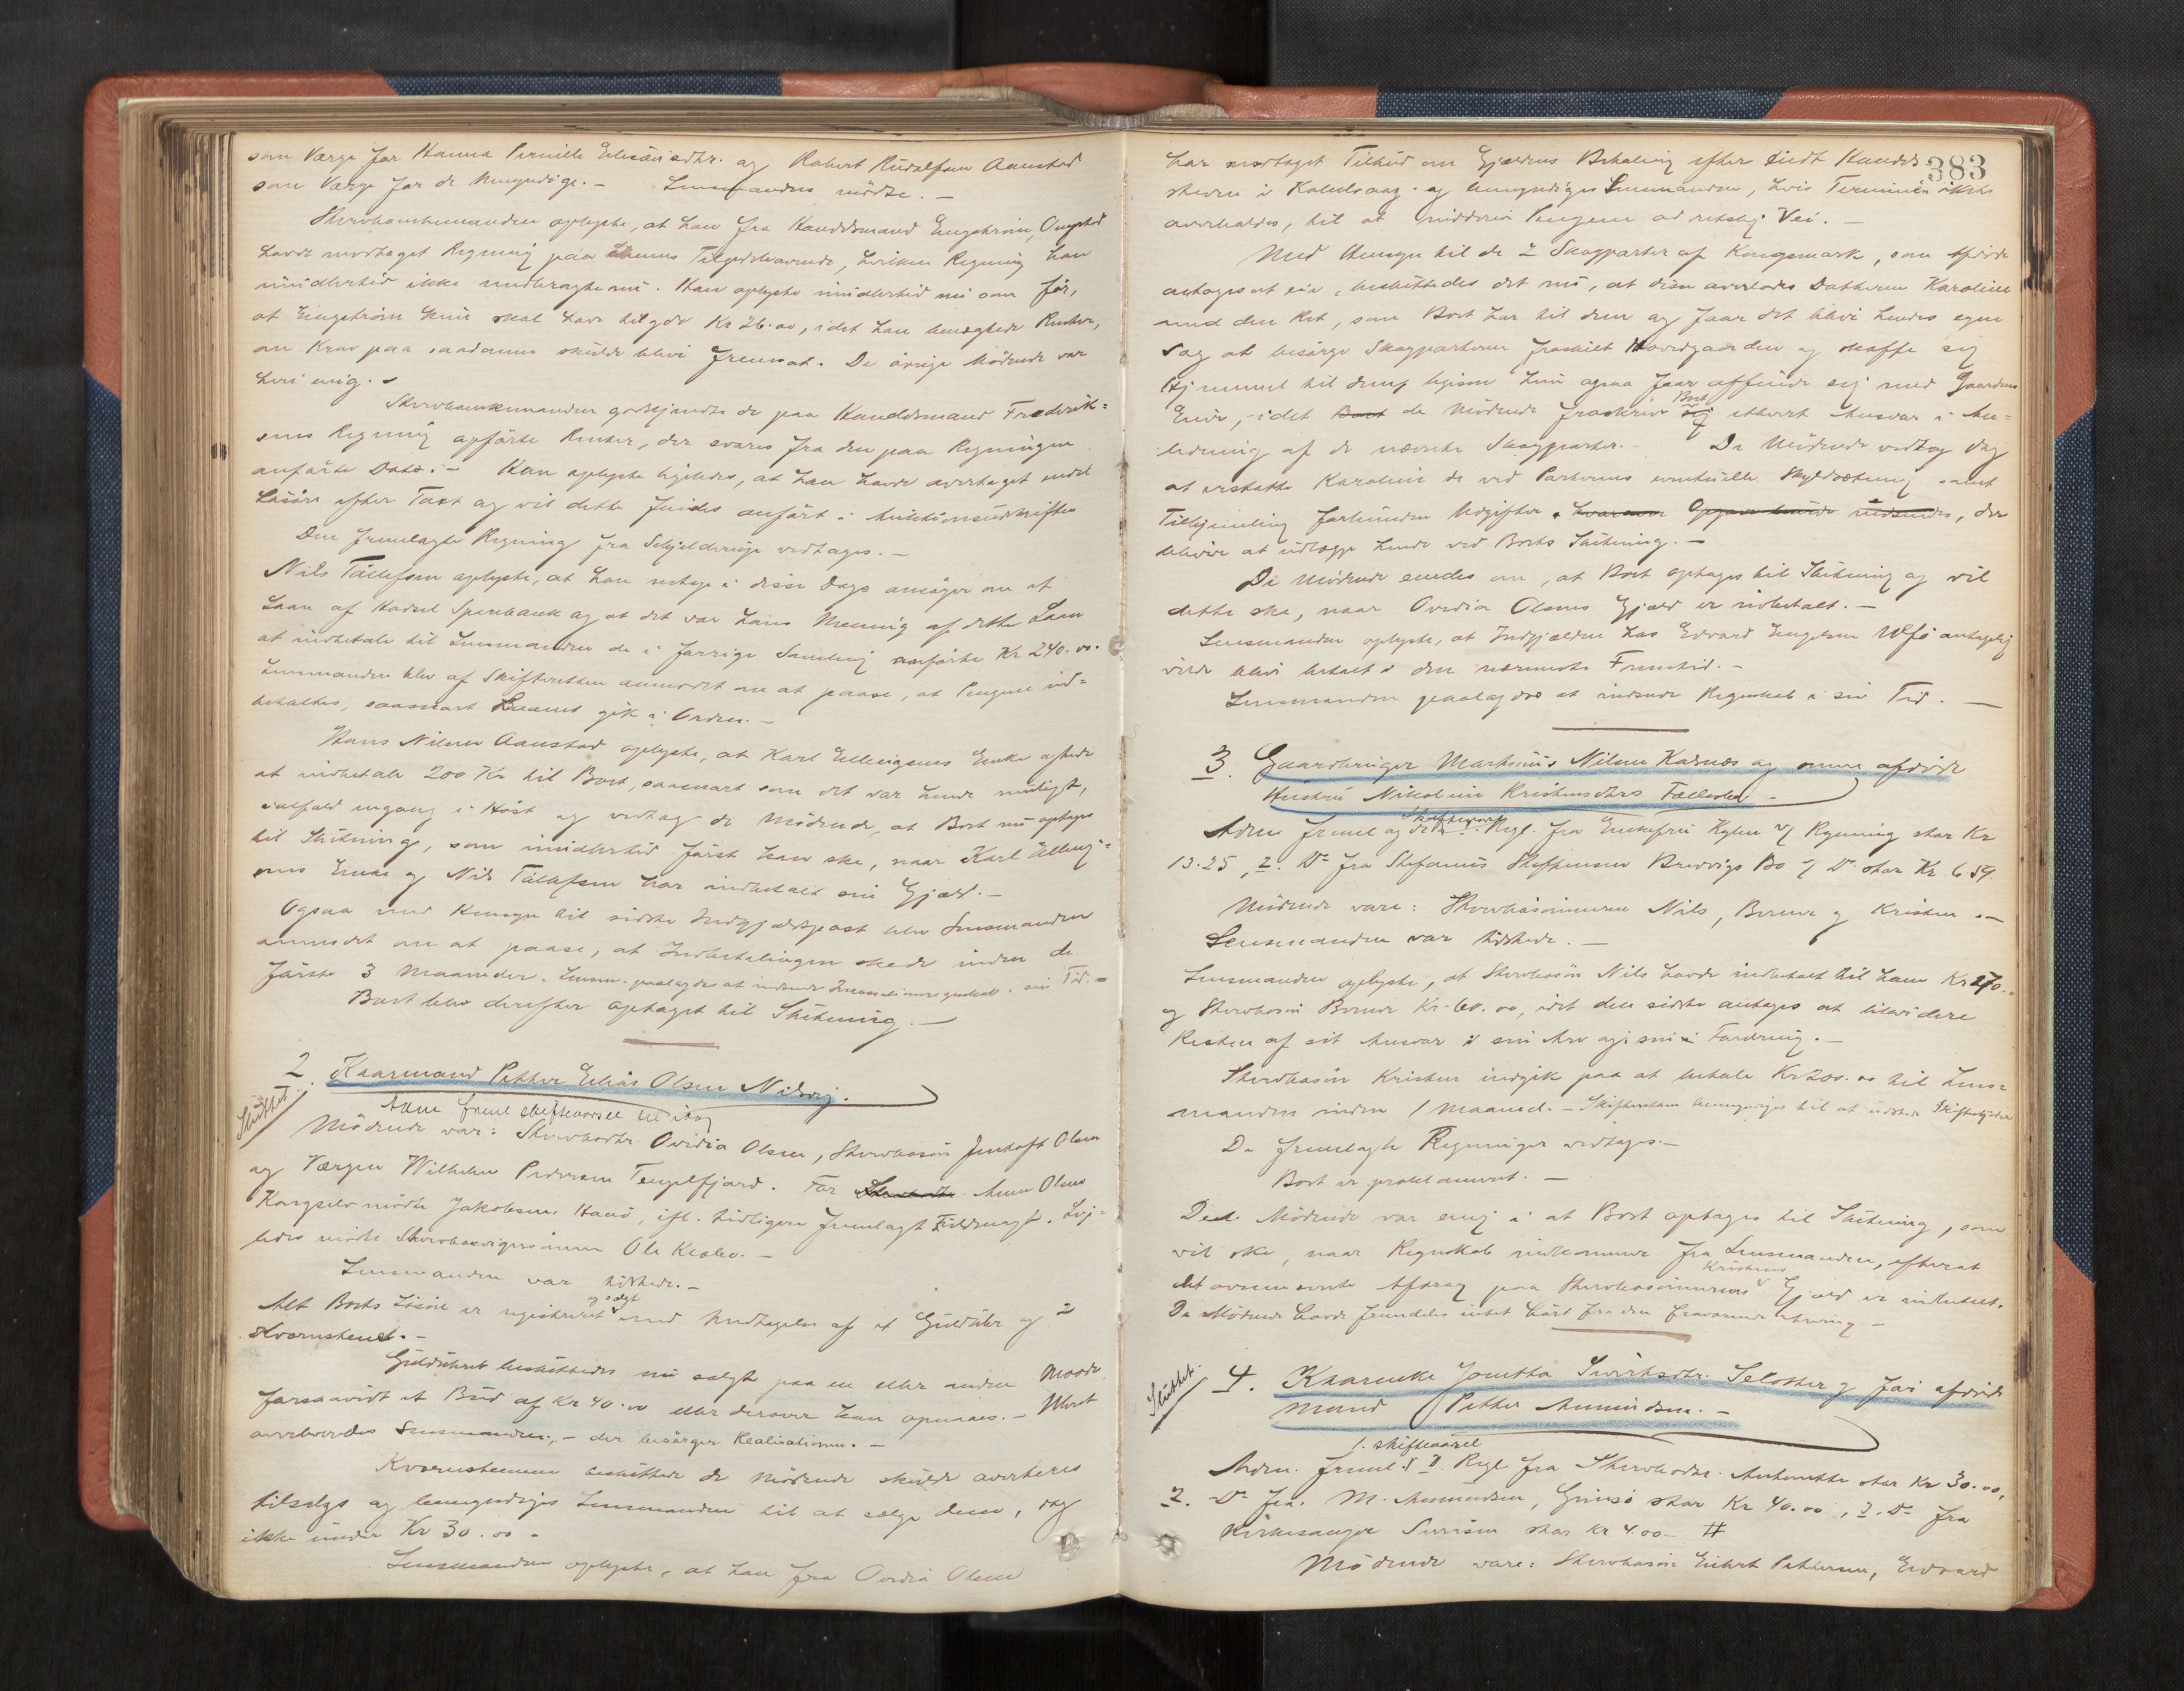 som Værge for Hanna Pernille Eliasdtr. og Robert Rudolfsen Aanstad
som Værge for de Umyndige. – Lensmanden mödte. –
Sterboenkemanden oplyste, at han fra Handelsmand Engström,
havde modtaget Regning paa hennes Tilgodehavende, hvilken Regning han
imidlertid ikke medbragte nu. Han oplyste imidlertid nu som för,
at Engström kun skal have tilgode Kr 26.00, idet han benægtede Renter,
om Krav paa saadanne skulde blive fremsat. De övrige Mödende var
heri enig. –
Sterboenkemanden godkjendte de paa Handelsmand Frederik-
sens Regning opförte Renter, der svares fra den paa Regningen
anförte Dato. – Han oplyste ligeledes, at han havde overtaget endel
Lösöre efter Taxt og vil dette findes anfört i Auktionsudskriften
Den fremlagte Regning fra Schjelderup vedtages. –
Nils Tollefsen oplyste, at han netop i disse Dage ansöger om et
Laan af Hadsel Sparebank og at det var hans Mening af dette Laan
at indbetale til Lensmanden de i forrige Samling anförte Kr 240.00.
Lensmanden blev af Skifteretten anmodet om at paase, at Pengene ind-
betaltes, saasnart Laanet gik i Orden. –
Hans Nilsen Aanstad oplyste, at Karl Ellingsens Enke agtede
at indbetale 200 Kr til Boet, saasnart som det var hende muligt,
ialfald engang i Höst og vedtog de Mödende, at Boet nu optages
til Slutning, som imidlertid först kan ske, naar Karl Elling-
sens Enke og Nils Tollefsen har indbetalt sin Gjæld. –
Ogsaa med Hensyn til sidste Indgjældspost blev Lensmanden
anmodet om at paase, at Indbetalingen skede inden de
förste 3 Maaneder. Lensm. paalagdes at indsende Incassationsregnskab i sin Tid. –
Boet blev derefter optaget til Slutning. –
2. Kaarmand Petter Elias Olsen Nidvig.
Sluttet
Aden freml skiftevarsel til idag
Mödende var: Sterbodtr. Ovidia Olsen, Sterbosön Jentoft Olsen
og Værgen Wilhelm Pedersen Tengelfjord. For Anna Olsens
Kongselv mödte Jakobsen, Hand, ifl. tidligere fremlagt Fuldmagt. Lige-
ledes mödte Sterbosvigersönnen Ole Klæbo. –
Lensmanden var tilstede. –
Alt Boets Lösöre er registreret og solgt med Undtagelse af et Guldur og 2
Kvernstene. –
Gulduret besluttedes nu solgt paa en eller anden Maade
forsaavidt et Bud af Kr 40.00 eller derover kan opnaaes. – Uhret
overleveredes Lensmanden, – der besörger Realisationen. –
Kvernstenene besluttede de Mödende skulde averteres
tilsalgs og bemyndiges Lensmanden til at sælge dem, dog
ikke under Kr 30.00 –
Lensmanden oplyste, at han fra Ovidia Olsen
383
har modtaget Tilbud om Gjældens Betaling efter endt
i og bemyndiges Lensmanden, hvis Terminen ikke
overholdes, til at inddrive Pengene ad retslig Vei. –
Med Hensyn til de 2 Skogparter af Kongsmark, som Afdöde
antoges at eie, besluttedes det nu, at disse overlades Datteren Karoline
med den Ret, som Boet har til dem og faar det blive hendes egen
Sag at besörge Skogparterne fraskilt Hovedgaarden og skaffe sig
Hjemmel til dem, ligesom hun ogsaa faar affinde sig med Gaardens
Eier, – idet Boet de Mödende fraskriver Boet sig ethvert Ansvar i An-
ledning af de nævnte Skogparter. – De Mödende vedtog dog
at erstatte Karoline de ved Parternes eventuelle Skyldsætning samt
Tilhjemling forbundne Udgifter, hvorover Opgave burde indsendes, der
bliver at udlægge hende ved Boets Slutning. –
De Mödende enedes om, at Boet optages til Slutning og vil
dette ske, naar Ovidia Olsens Gjæld er indbetalt. –
Lensmanden oplyste, at Indgjælden hos Edvard Engelsen Ulfö antagelig
vilde blive betalt i den nærmeste Fremtid. –
Lensmanden paalagdes at indsende Regnskab i sin Tid. –
3. Gaardbruger Martinus Nilsen Kadnæs og senere afdöde
Hustru Nikoline Kristensdtrs Fællesbo –
Aden fremlagdes Skiftevarsel 1. Regl. fra Enkefru Kylen v/ Regning stor Kr
13.25, 2. Do fra Stefanus Steffensen Bredvigs Bo v/ Do stor Kr 6.59.
Mödende vare: Sterbosönnerne Nils, Berner og Kristen. –
Lensmanden var tilstede. –
Lensmanden oplyste, at Sterbosön Nils havde indbetalt til ham Kr 270.
og Sterbosön Berner Kr. 60.00, idet den sidste antages at likvidere
Resten af sit Ansvar i sin Arv og i sin Fordring. –
Sterbosön Kristen indgik paa at betale Kr 200.00 til Lens-
manden inden 1 Maaned. – Skifteretten bemyndiges til at udstede Skifteskjöder
De fremlagte Regninger vedtoges. –
Boet er proklameret. –
De Mödende var enig i at Boet optages til Slutning, som
vil ske, naar Regnskab indkommer fra Lensmanden, efterat
det ovennævnte Afdrag paa Sterbosönnens Kristens Gjæld er indbetalt.
De Mödende havde fremdeles intet hört fra den fraværende Arving –
4. Kaarenke Jonetta Sivertsdtr. Selotter og för afdöde
Mand Petter Amundsen. –
Sluttet
1. skiftevarsel
Aden. freml. 1 Regl fra Sterbodtr. Antonette stor Kr 30.00,
2. Do fra M. Amundsen, Grimsö stor Kr 40.00, 3. Do fra
Kirkesanger stor Kr 4.00 – #
Mödende vare: Sterbosön Einert Pettersen, Edvard